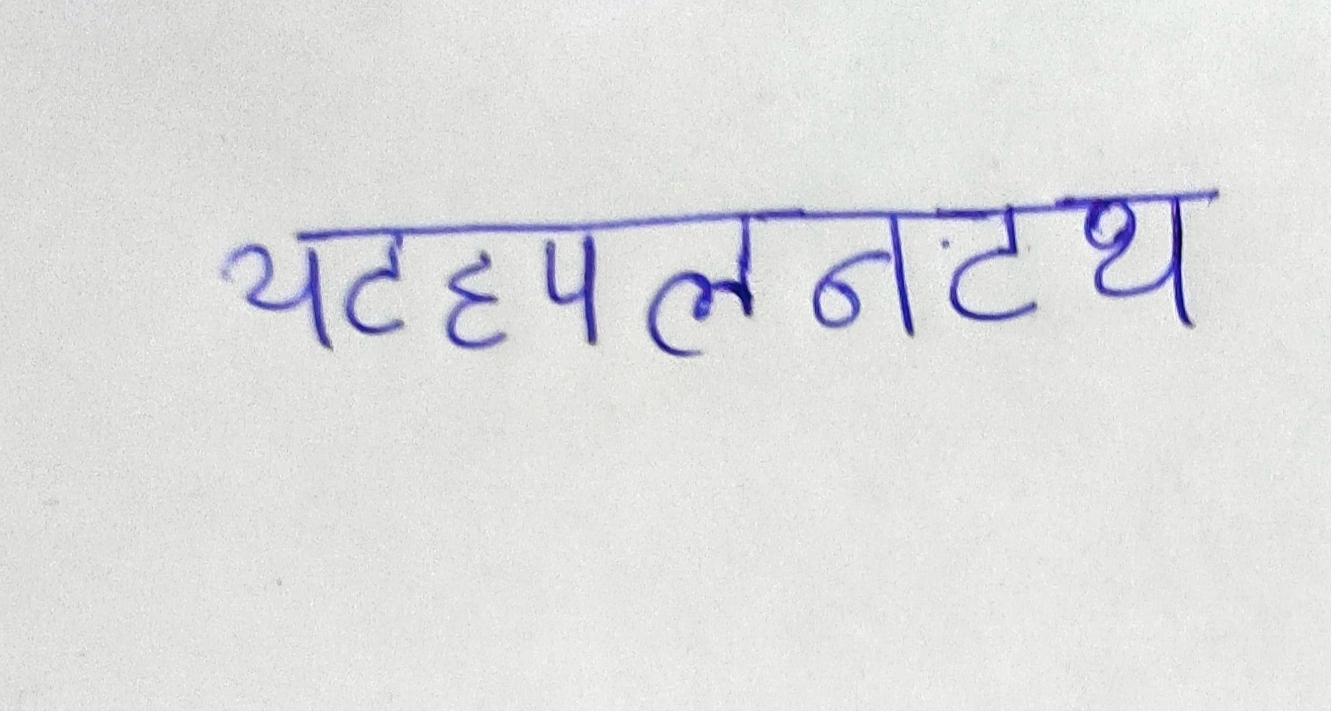 यटहपलनटथ